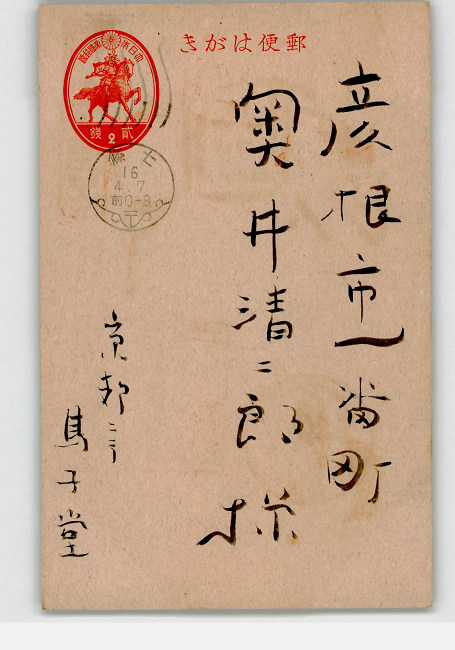 郵便はがき
大日本帝國郵便
貳 2 錢
七
16
4.7
前0-8
〒
彦根市一番町
奥井清二郎様
京都ニテ